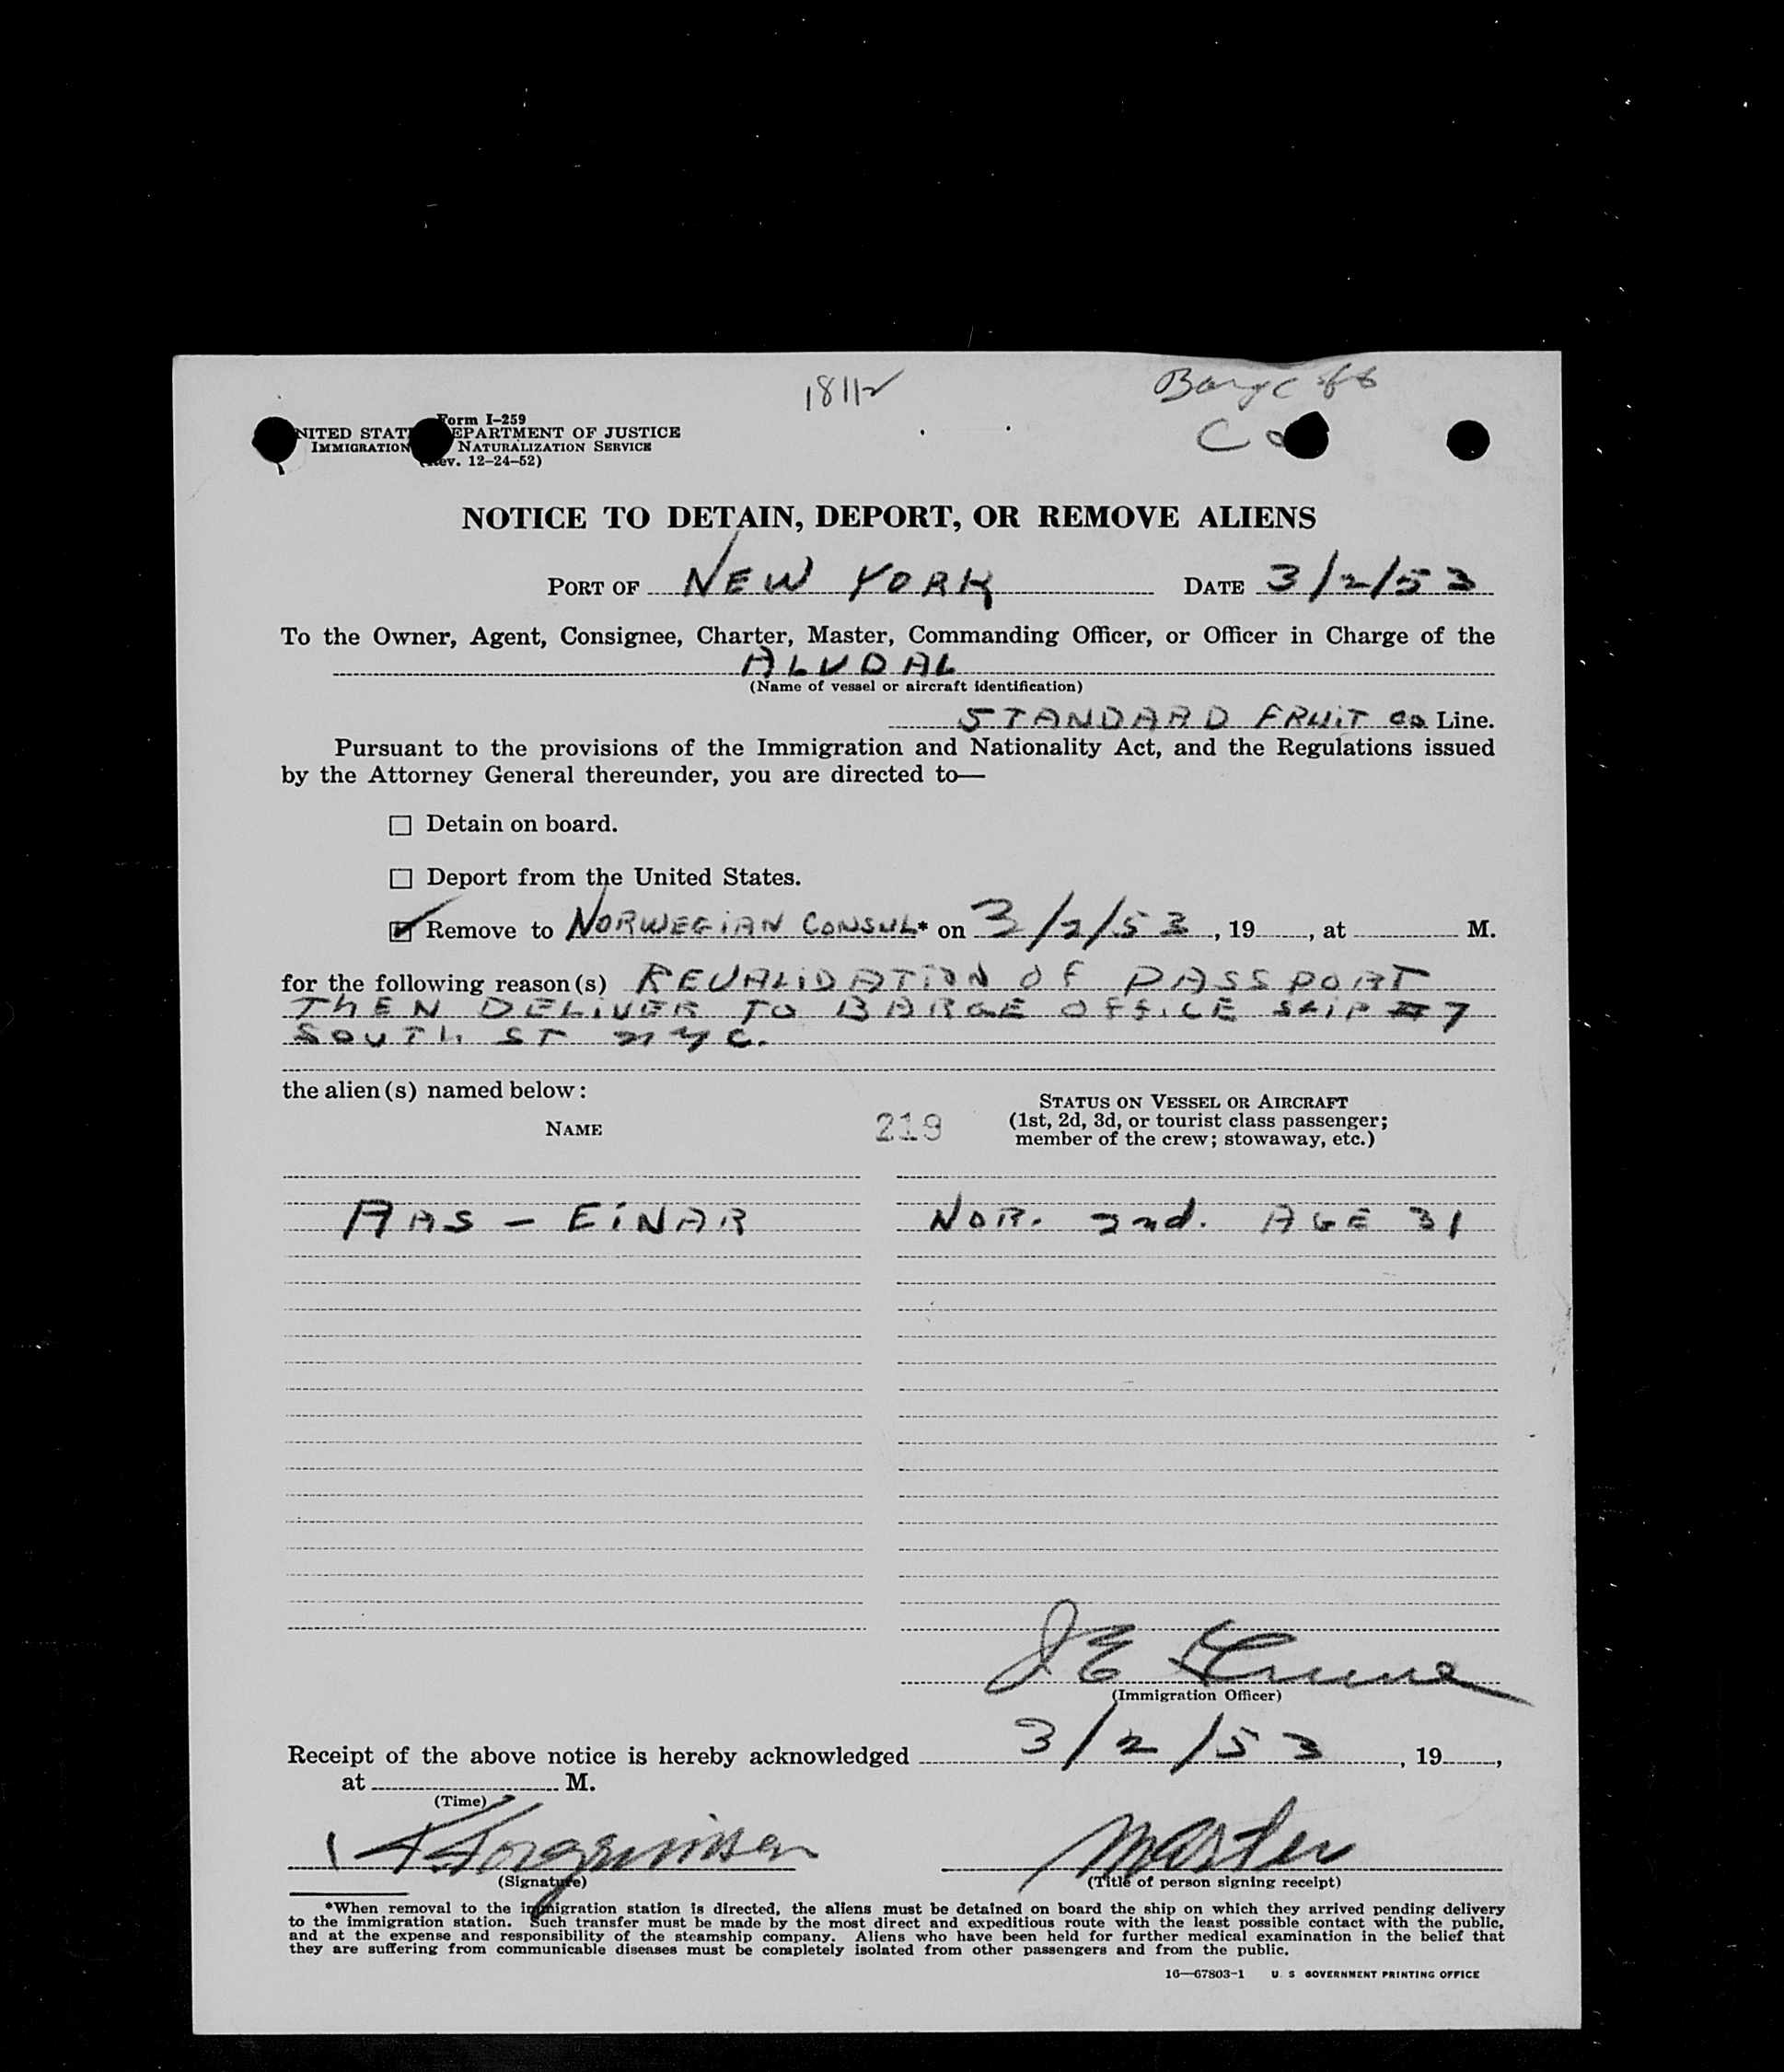 18112
Barge Off
Co
Form I-259
UNITED STATES DEPARTMENT OF JUSTICE
IMMIGRATION NATURALIZATION SERVICE
(Rev. 12-24-52)
NOTICE TO DETAIN, DEPORT, OR REMOVE ALIENS
PORT OF NEW YORK DATE 3/2/53
To the Owner, Agent, Consignee, Charter, Master, Commanding Officer, or Officer in Charge of the
ALVDAL
(Name of vessel or aircraft identification)
STANDARD FRUIT Co Line.
Pursuant to the provisions of the Immigration and Nationality Act, and the Regulations issued
by the Attorney General thereunder, you are directed to—
Detain on board.
Deport from the United States.
Remove to NORWEGIAN CONSUL* on 3/2/53, 19, at M.
for the following reason(s) REVALIDATION OF PASSPORT
THEN DELIVER TO BARGE OFFICE SLIP #7
SOUTH ST NYC.
the alien(s) named below:
STATUS ON VESSEL OR AIRCRAFT
NAME 219 (1st, 2d, 3d, or tourist class passenger;
member of the crew; stowaway, etc.)
AAS - EINAR NOR. 2nd. AGE 31
J E
(Immigration Officer)
Receipt of the above notice is hereby acknowledged 3/2/53, 19,
at M.
(Time)
Master
(Signature) (Title of person signing receipt)
*When removal to the immigration station is directed, the aliens must be detained on board the ship on which they arrived pending delivery
to the immigration station. Such transfer must be made by the most direct and expeditious route with the least possible contact with the public,
and at the expense and responsibility of the steamship company. Aliens who have been held for further medical examination in the belief that
they are suffering from communicable diseases must be completely isolated from other passengers and from the public.
16—67803-1 U. S GOVERNMENT PRINTING OFFICE